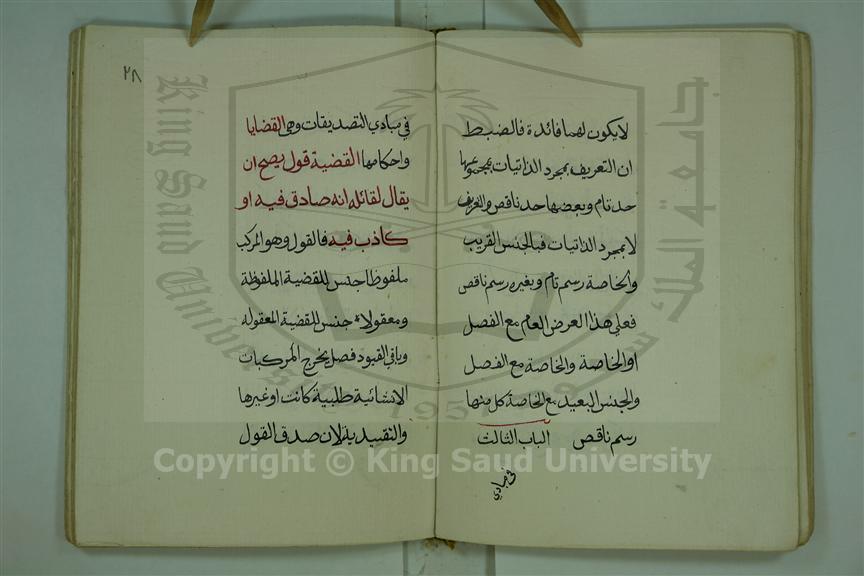 لا يكون لهما فائدة فالضبط
ان التعريف بمجرد الذاتيات بمجموعها
حد تام وبعضها حد ناقص والتعريف
لا بمجرد الذاتيات فبالجنس القريب
والخاصة رسم تام وبغيره رسم ناقص
فعلي هذا العرض العام مع الفصل
او الخاصة والخاصة مع الفصل
والجنس البعيد مع الخاصة كل منها
رسم ناقص الباب الثالث
في مبادي
٢٨
في مبادي التصديقات وهي القضايا
واحكامها القضية قول يصح ان
يقال لقائله انه صادق فيه او
كاذب فيه فالقول وهو المركب
ملفوظا جنس للقضية الملفوظة
ومعقولا جنس للقضية المعقوله
وباقي القيود فصل يخرج المركبات
الانشائية طلبية كانت او غيرها
والتقييدية لان صدق القول
جامعة الملك سعود
King Saud University
1957
Copyright © King Saud University